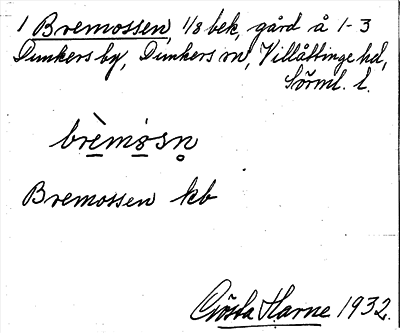 1 Bremossen, 1/8 bek, gård å 1-3
Dunkers by, Dunkers sn, Villåttinge hd,
Sörml. l.
brèmåsn̥
Bremossen kb
Gösta Harne 1932.